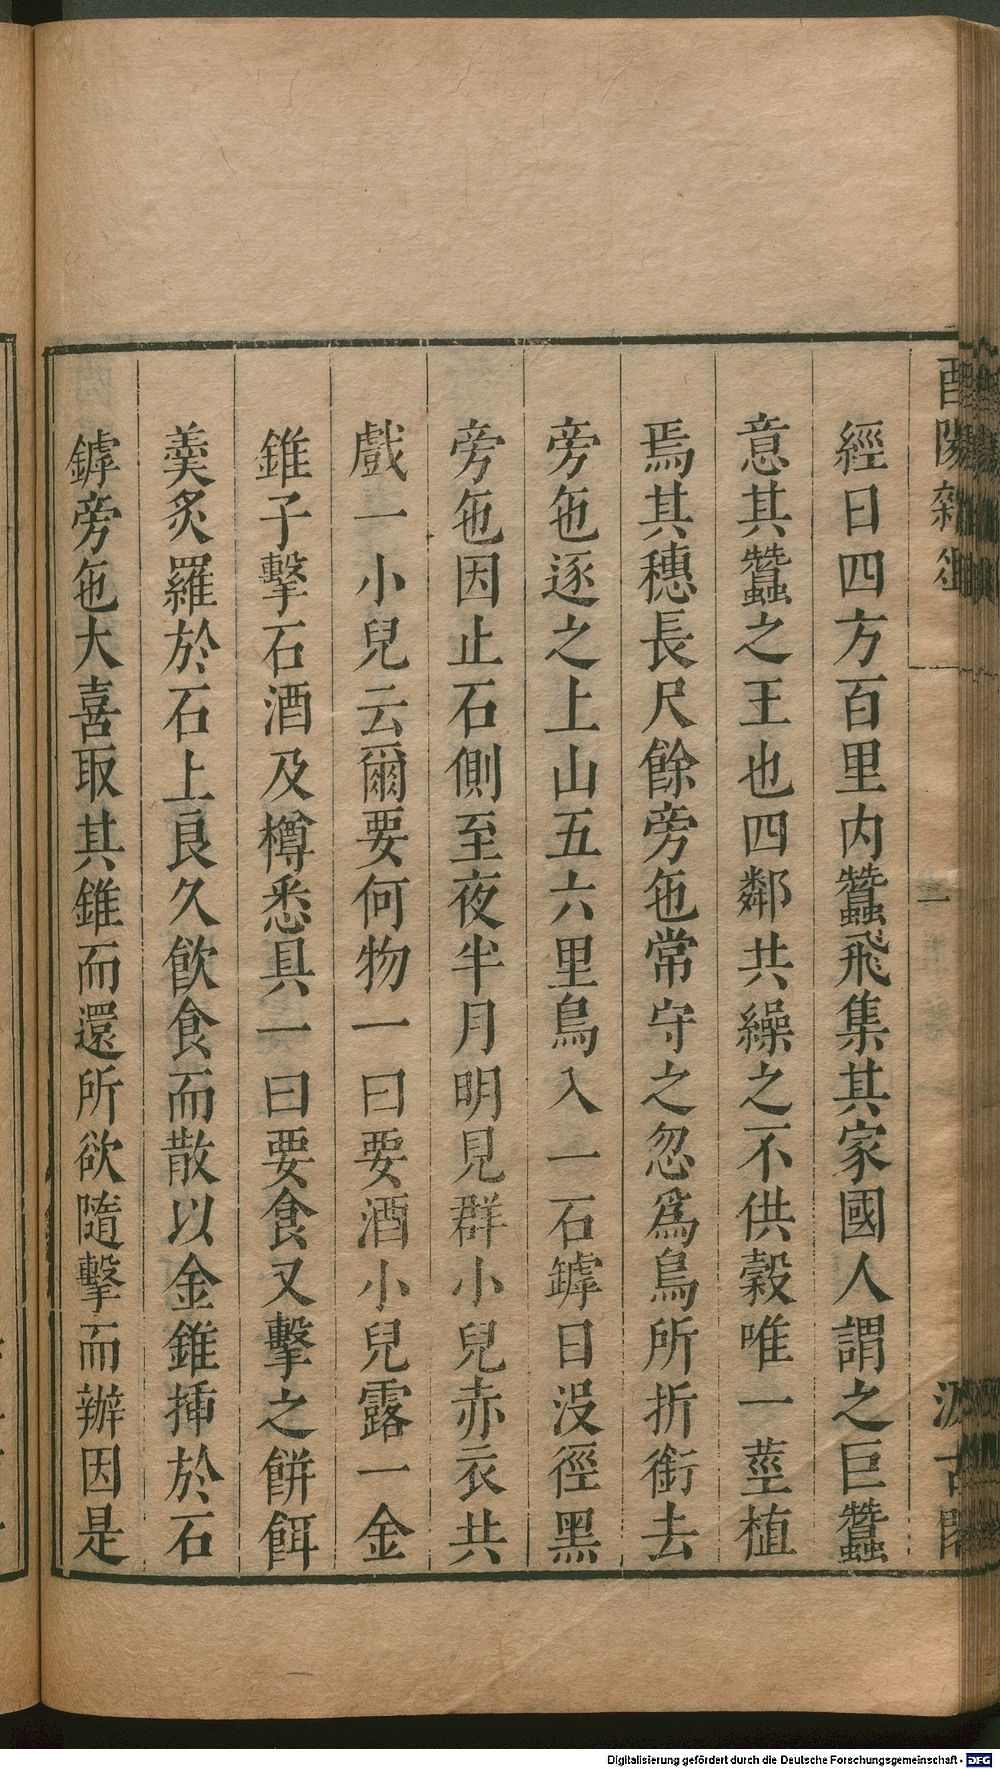 酉陽雜俎
二
汲古閣
經日四方百里内蠶飛集其家國人謂之巨蠶
意其蠶之王也四鄰共繰之不供穀唯一莖植
焉其穗長尺餘旁㐌常守之忽爲鳥所折銜去
旁㐌逐之上山五六里鳥入一石罅日没徑黑
旁㐌因止石側至夜半月明見群小兒赤衣共
戲一小兒云爾要何物一曰要酒小兒露一金
錐子擊石酒及樽悉具一曰要食又擊之餅餌
羹炙羅於石上良久飲食而散以金錐揷於石
罅旁㐌大喜取其錐而還所欲隨擊而辦因是
Digitalisierung gefördert durch die Deutsche Forschungsgemeinschaft - DFG